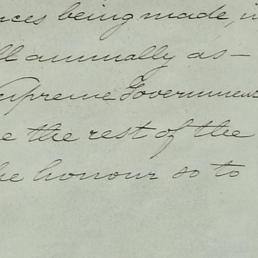 nces being made, i
ll annually as-
upreme Government
e the rest of the
he honour so to